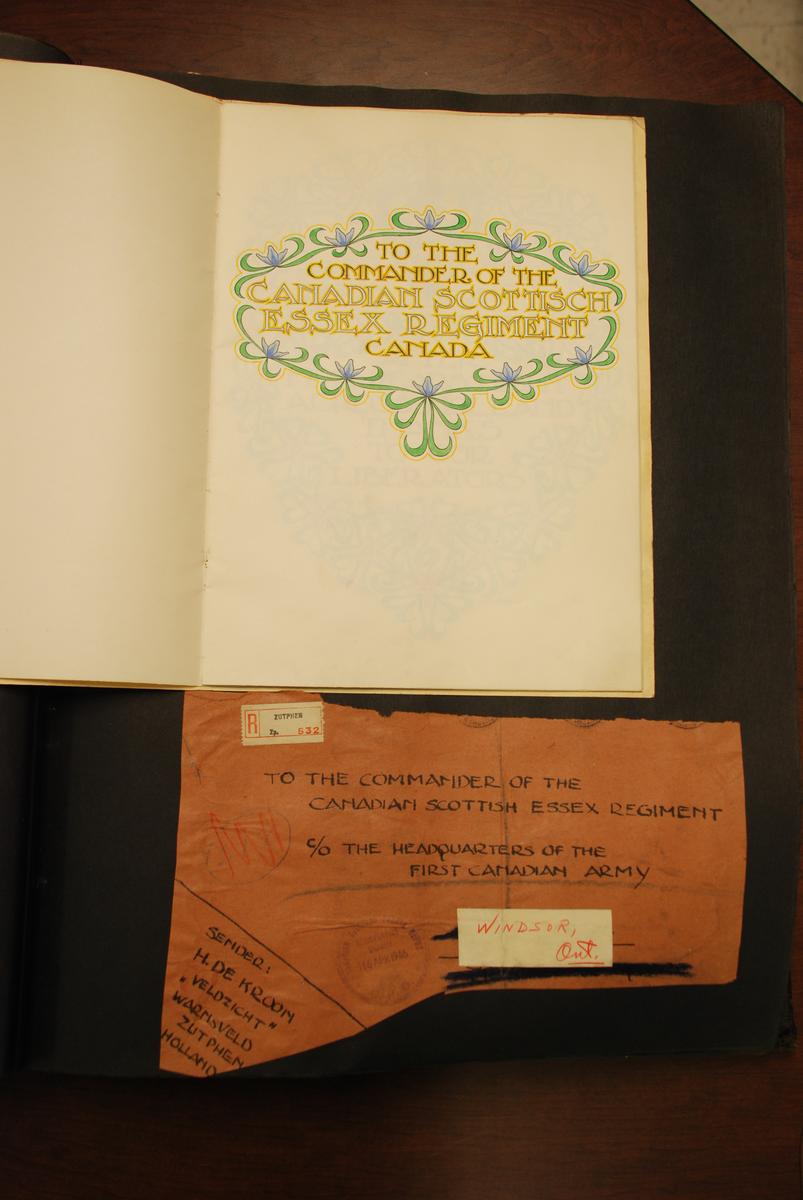 TO THE
COMMANDER OF THE
CANADIAN SCOTTISCH
ESSEX REGIMENT
CANADA
LIBERATORS
R ZUTPHEN
Zp. 632
TO THE COMMANDER OF THE
CANADIAN SCOTTISH ESSEX REGIMENT
c/o THE HEADQUARTERS OF THE
FIRST CANADIAN ARMY
WINDSOR,
Ont.
SENDER:
H. DE KROON
„VELDZICHT"
WARNSVELD
ZUTPHEN
HOLLAND